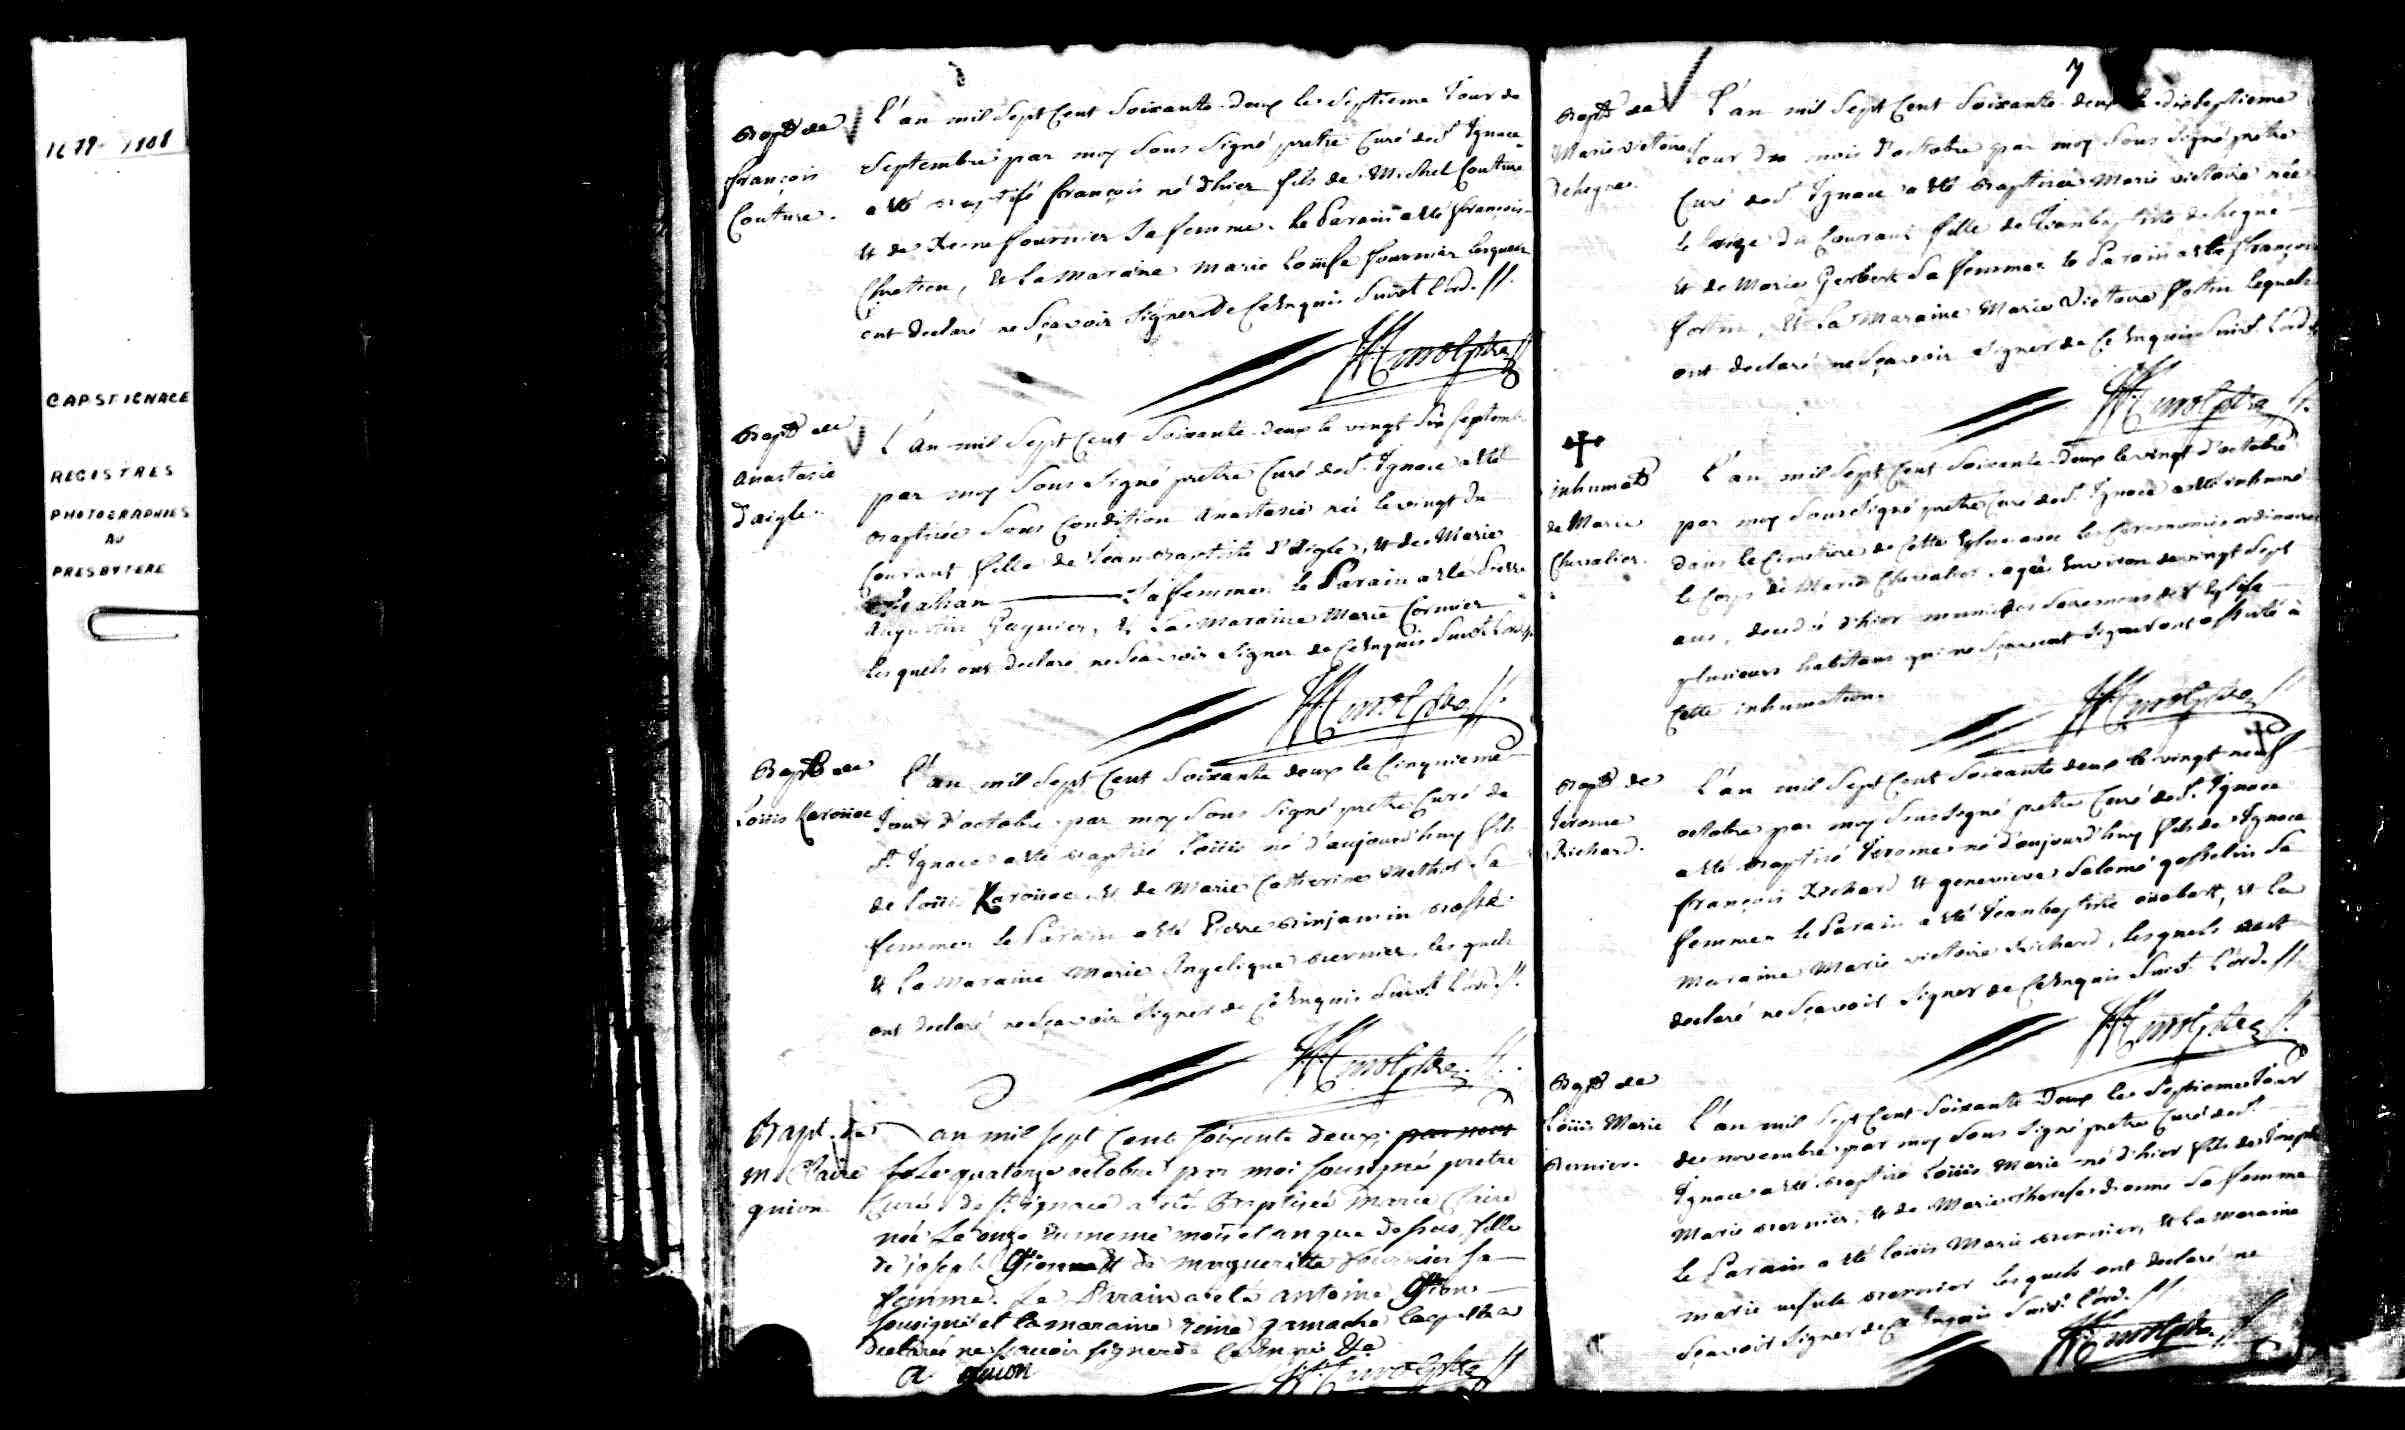 1679-1808
CAP ST IGNACE
REGISTRES
PHOTOGRAPHIES
AU
PRESBYTERE
Bapt de
françois
Couture.
L'an mil Sept Cent Soixante-deux le Septieme Jour de
Septembre par moy Sous Signé pretre Curé de St Ignace
a été baptisé françois né d'hier fils de Michel Couture
et de Reine fournier Sa femme. le Parain a été françois
Chretien, et La Maraine Marie Loüise fournier lesquels
ont declaré ne Sçavoir Signer de Ce Enquis Suivt l'ord. //.
Bapt de
Anastasie
Daigle.
L'an mil Sept Cent Soixante-deux le vingt Six Septemb.
par moy Sous Signé pretre Curé de St. Ignace a été
baptisée Sous Condition Anastasie née le vingt du
Courant fille de Jean baptiste d'Aigle, et de Marie
Sa femme. le Parain a été Pierre
Augustin Gagnier, et La Maraine Marie Cormier
lesquels ont declaré ne Scavoir Signer de Ce Enquis Suivt L'ord.
Bapt de
Loüis Karoüac
L'an mil Sept Cent Soixante deux le Cinquieme
Jour d'octobre par moy Sous Signé pretre Curé de
St Ignace a été baptisé Loüis né d'aujourd'huy fils
de Loüis Karoüac et de Marie Catherine Methot Sa
femme. le Parain a été Pierre Binjamin
et La Maraine Marie Angelique Bernier, lesquels
ont declaré ne Sçavoir Signer de Ce Enquis Suivt. L'ord. //.
Bapt. de
M. Claire
guion
L'an mil sept Cent soixente deux, par moi
Le quatorze octobre par moi sousigné pretre
Curé de St ignace a eté Baptisée Marie Claire
née Le onze du meme mois et an que dessus, fille
de joseph Gion et de margueritte fournier sa
femme. Le Parain a eté antoine Gion
sousigné et la maraine reine gamache laquelle a
declarée ne scavoir signer de Ce Enquis &a
A guion
7
Bapt de
Marie victoire
deheque.
L'an mil Sept Cent Soixante-deux le dixseptieme
Jour du mois d'octobre par moy Sous Signé pretre
Curé de St. Ignace a été baptisée Marie victoire née
le Seize du Courant fille de Jean baptiste deheque
et de Marie Gerbert Sa femme. le Parain a été françois
fortin, et La Maraine Marie Victoire fortin lesquels
ont declaré ne Sçavoir Signer de Ce Enquis Suivt. L'ord.
inhumat
de Marie
Chevalier.
L'an mil Sept Cent Soixante-deux le vingt d'octobre
par moy Sous Signé pretre Curé de St. Ignace a été inhumé
dans le Cimetiere de Cette Eglise avec les Ceremonies ordinaires
le Corps de Marie Chevalier, agée Environ de vingt Sept
ans, decedée d'hier munie des Sacremens de l'Eglise
plusieurs habitans qui ne Sçavent Signer ont assisté à
Cette inhumation.
Bapt de
Jerome
Richard.
L'an mil Sept Cent Soixante deux le vingt-neuf
octobre par moy Sous Signé pretre Curé de St. Ignace
a été baptisé Jerome né d'aujourd'huy fils de Ignace
françois Richard et genevieve Salomé gosselin Sa
femme. le Parain a été Jean baptiste, et La
Maraine Marie victoire Richard, lesquels ont
declaré ne Sçavoir Signer de Ce Enquis Suivt. L'ord. //.
Bapt de
Loüis Marie
Bernier.
L'an mil Sept Cent Soixante-deux le Septieme Jour
de novembre par moy Sous Signé pretre Curé de St.
Ignace a été baptisé Loüis Marie né d'hier fils de Joseph
Marie Bernier, et de Marie therese dionne Sa femme
le Parain a été Loüis Marie Bernier, et La Maraine
marie Bernier lesquels ont declaré ne
Sçavoir Signer de Ce Enquis Suivt. l'ord. //.